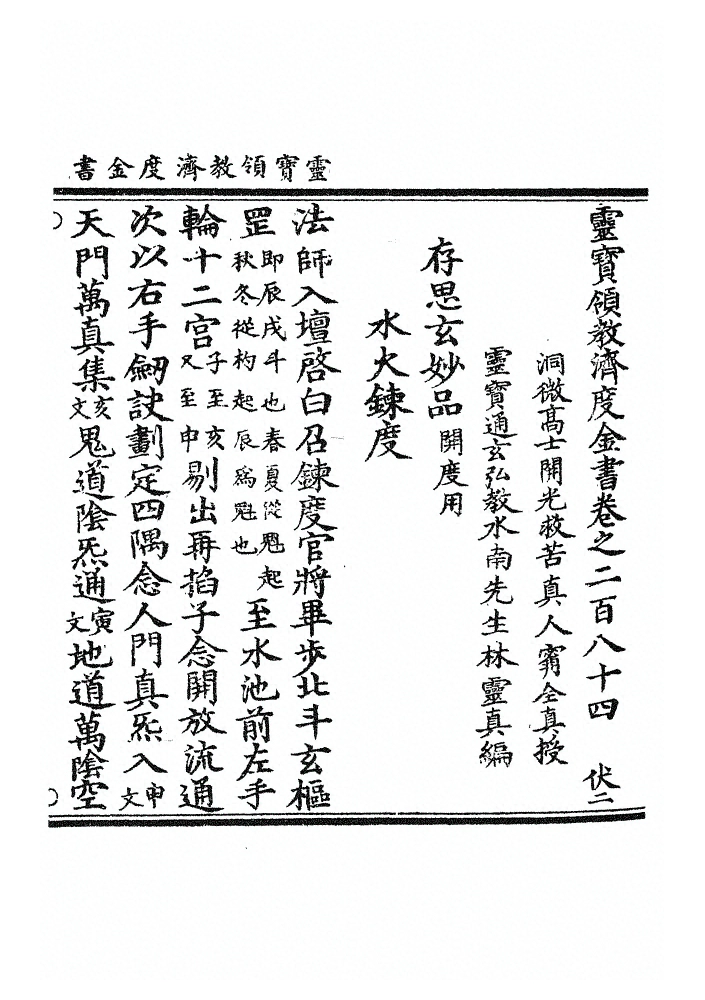 靈寶領教濟度金書
靈寶領教濟度金書卷之二百八十四　伏二
洞微髙士開光救苦真人甯全真授
靈寶通玄弘教水南先生林靈真編
存思玄妙品　開度用
水火鍊度
法師入壇啓白召鍊度官將畢步北斗玄樞
罡即辰戌斗也春夏從魁起秋冬從杓起辰爲魁也至水池前左手
輪十二宫子至亥又至申剔出再掐子念開放流通
次以右手劒訣劃定四隅念人門真炁入申文
天門萬真集亥文鬼道陰炁通寅文地道萬陰空